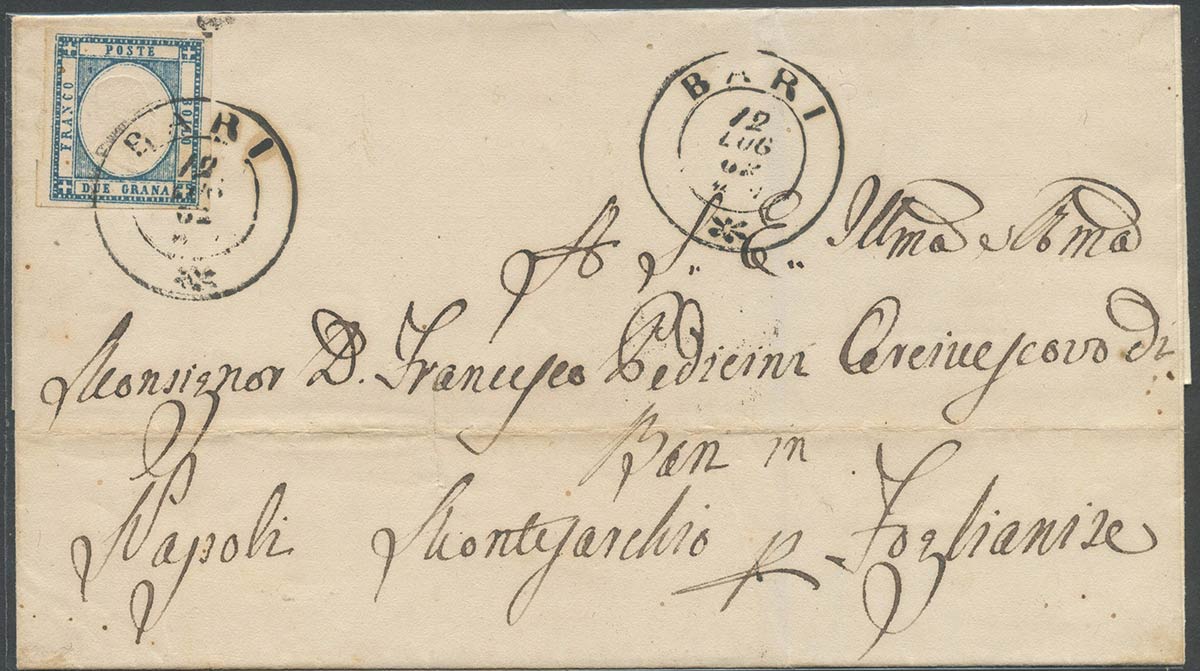 POSTE
FRANCO
BOLLO
DUE GRANA
BARI
12
BARI
12
LUG
62
A S. E. Illma e Rma
Monsignor D. Francesco Pedicini Arcivescovo di
Bari in
Napoli Montesarchio p. Foglianise